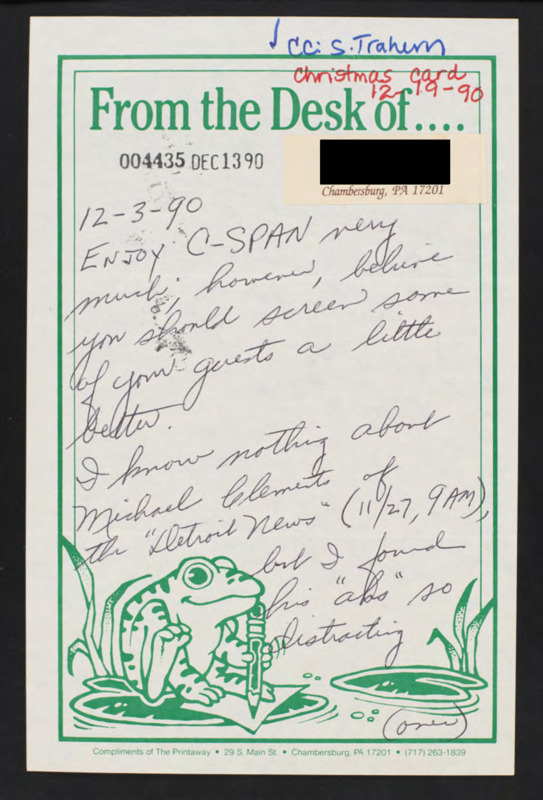 cc: S. Trahern
Christmas card
12-19-90
From the Desk of....
004435 DEC1390
Chambersburg, PA 17201
12-3-90
Enjoy C-SPAN very
much; however, believe
you should screen some
of your guests a little
better.
I know nothing about
Michael Clements of
the "Detroit News" (11/27, 9AM),
but I found
his "ahs" so
distracting
(over)
Compliments of The Printaway • 29 S. Main St. • Chambersburg, PA 17201 • (717) 263-1839